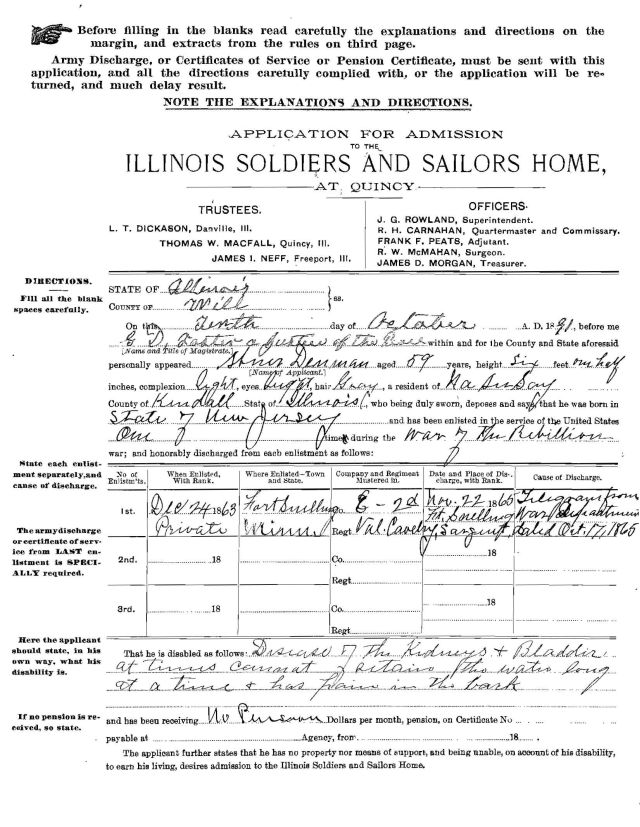 Before filling in the blanks read carefully the explanations and directions on the
margin, and extracts from the rules on third page.
Army Discharge, or Certificates of Service or Pension Certificate, must be sent with this
application, and all the directions carefully complied with, or the application will be re-
turned, and much delay result.
NOTE THE EXPLANATIONS AND DIRECTIONS.
APPLICATION FOR ADMISSION
TO THE
ILLINOIS SOLDIERS AND SAILORS HOME,
AT QUINCY
TRUSTEES.
L. T. DICKASON, Danville, Ill.
THOMAS W. MACFALL, Quincy, Ill.
JAMES I. NEFF, Freeport, Ill.
OFFICERS.
J. G. ROWLAND, Superintendent.
R. H. CARNAHAN, Quartermaster and Commissary.
FRANK F. PEATS, Adjutant.
R. W. McMAHAN, Surgeon.
JAMES D. MORGAN, Treasurer.
DIRECTIONS.
Fill all the blank
spaces carefully.
STATE OF Illinois
COUNTY OF Will
ss.
On this Tenth day of October A. D. 1891, before me
a Justice of the Peace within and for the County and State aforesaid
[Name and Title of Magistrate.]
personally appeared Denman aged 59 years, height Six feet one half
[Name of Applicant.]
inches, complexion light, eyes hair Gray, a resident of Na Au Say
County of Kendall State of Illinois, who being duly sworn, deposes and says that he was born in
State of New Jersey and has been enlisted in the service of the United States
One times during the War of the Rebillion
war; and honorably discharged from each enlistment as follows:
State each enlist-
ment separately, and
cause of discharge.
The army discharge
or certificate of serv-
ice from LAST en-
listment is SPECI-
ALLY required.
No. of Enlistm'ts.
When Enlisted, With Rank.
Where Enlisted—Town and State.
Company and Regiment Mustered in.
Date and Place of Discharge, with Rank.
Cause of Discharge.
1st. Dec 24 1863 Fort Snelling Co. E - 2d Nov. 22 1865 Telegram from
Private Minn. Regt Val. Cavelry Ft. Snelling Sargent War Department dated Oct. 17, 1865
2nd. 18 Co. 18
Regt
3rd. 18 Co. 18
Regt
Here the applicant
should state, in his
own way, what his
disability is.
That he is disabled as follows: Disease of the Kidneys & Bladder
at times cannot retain the water long
at a time & has pain in the back
If no pension is re-
ceived, so state.
and has been receiving No Pension Dollars per month, pension, on Certificate No
payable at Agency, from 18
The applicant further states that he has no property nor means of support, and being unable, on account of his disability,
to earn his living, desires admission to the Illinois Soldiers and Sailors Home.